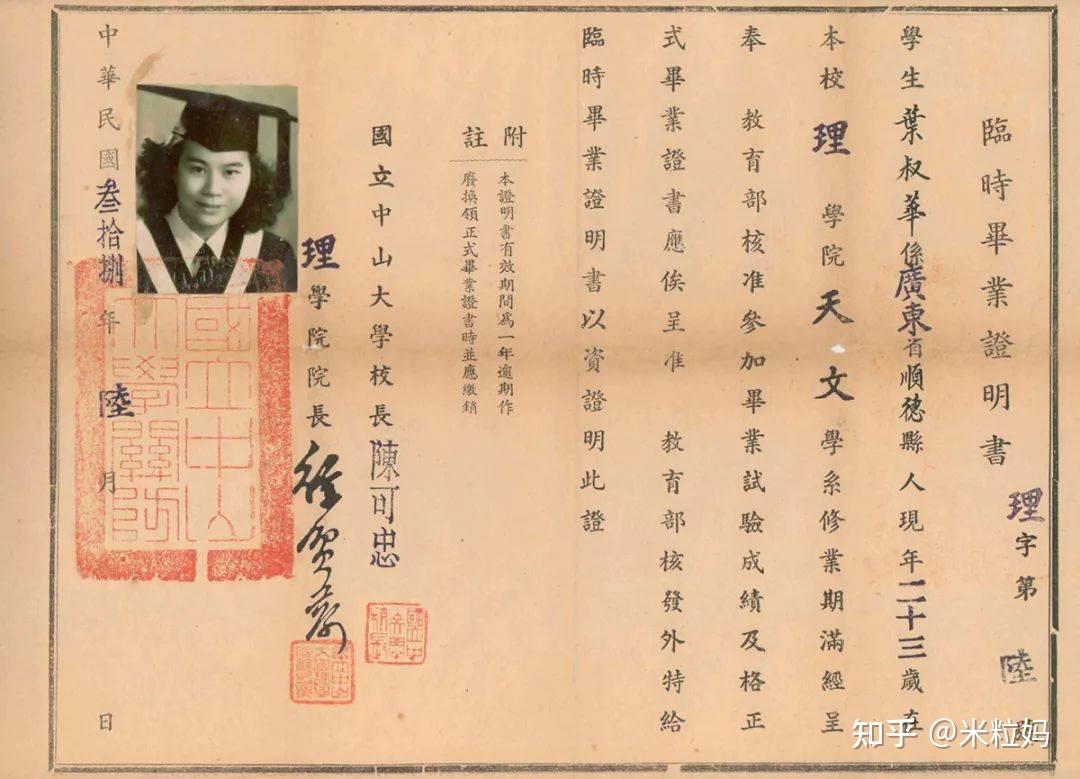 臨時畢業證明書
理字第陸號
學生葉叔華係廣東省順德縣人現年二十三歲在
本校理學院天文學系修業期滿經呈
奉 教育部核准參加畢業試驗成績及格正
式畢業證書應俟呈准 教育部核發外特給
臨時畢業證明書以資證明此證
附註
本證明書有效期間爲一年逾期作
廢換領正式畢業證書時並應繳銷
國立中山大學校長陳可忠
理學院院長徐賢恭
中華民國叁拾捌年陸月 日
國立中山
大學關防
知乎 @米粒妈